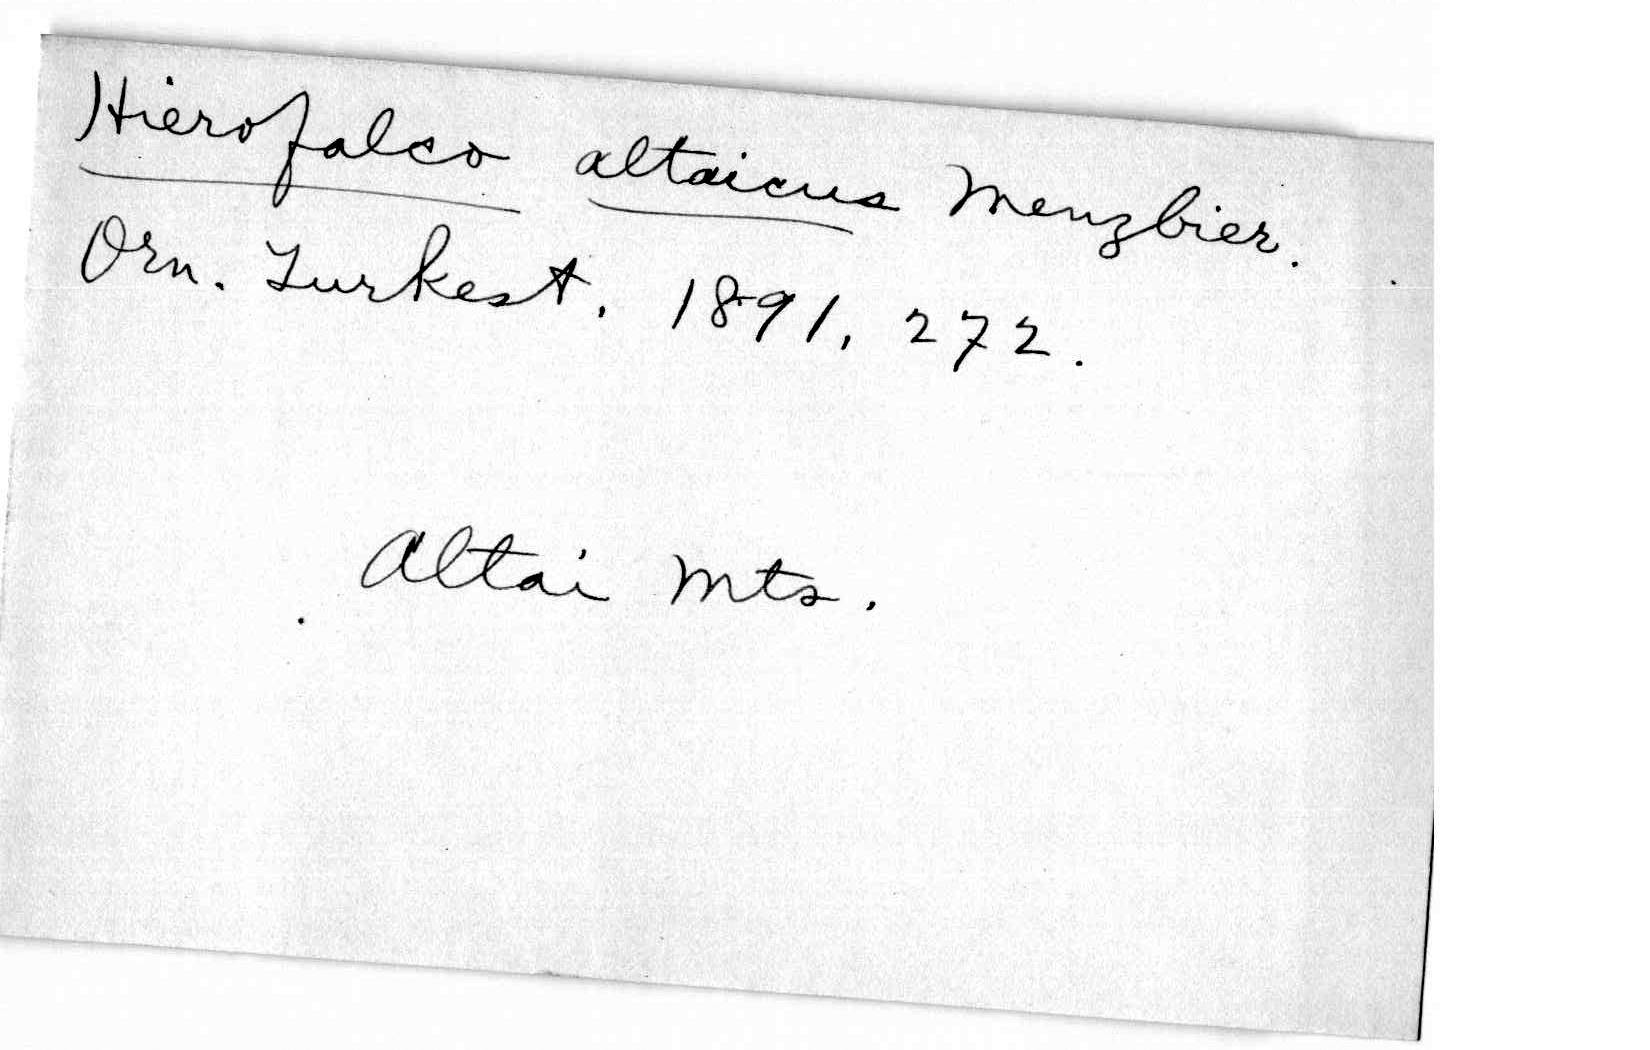 Hierofalco altaicus Menzbier.
Orn. Turkest. 1891, 272.
Altai Mts.